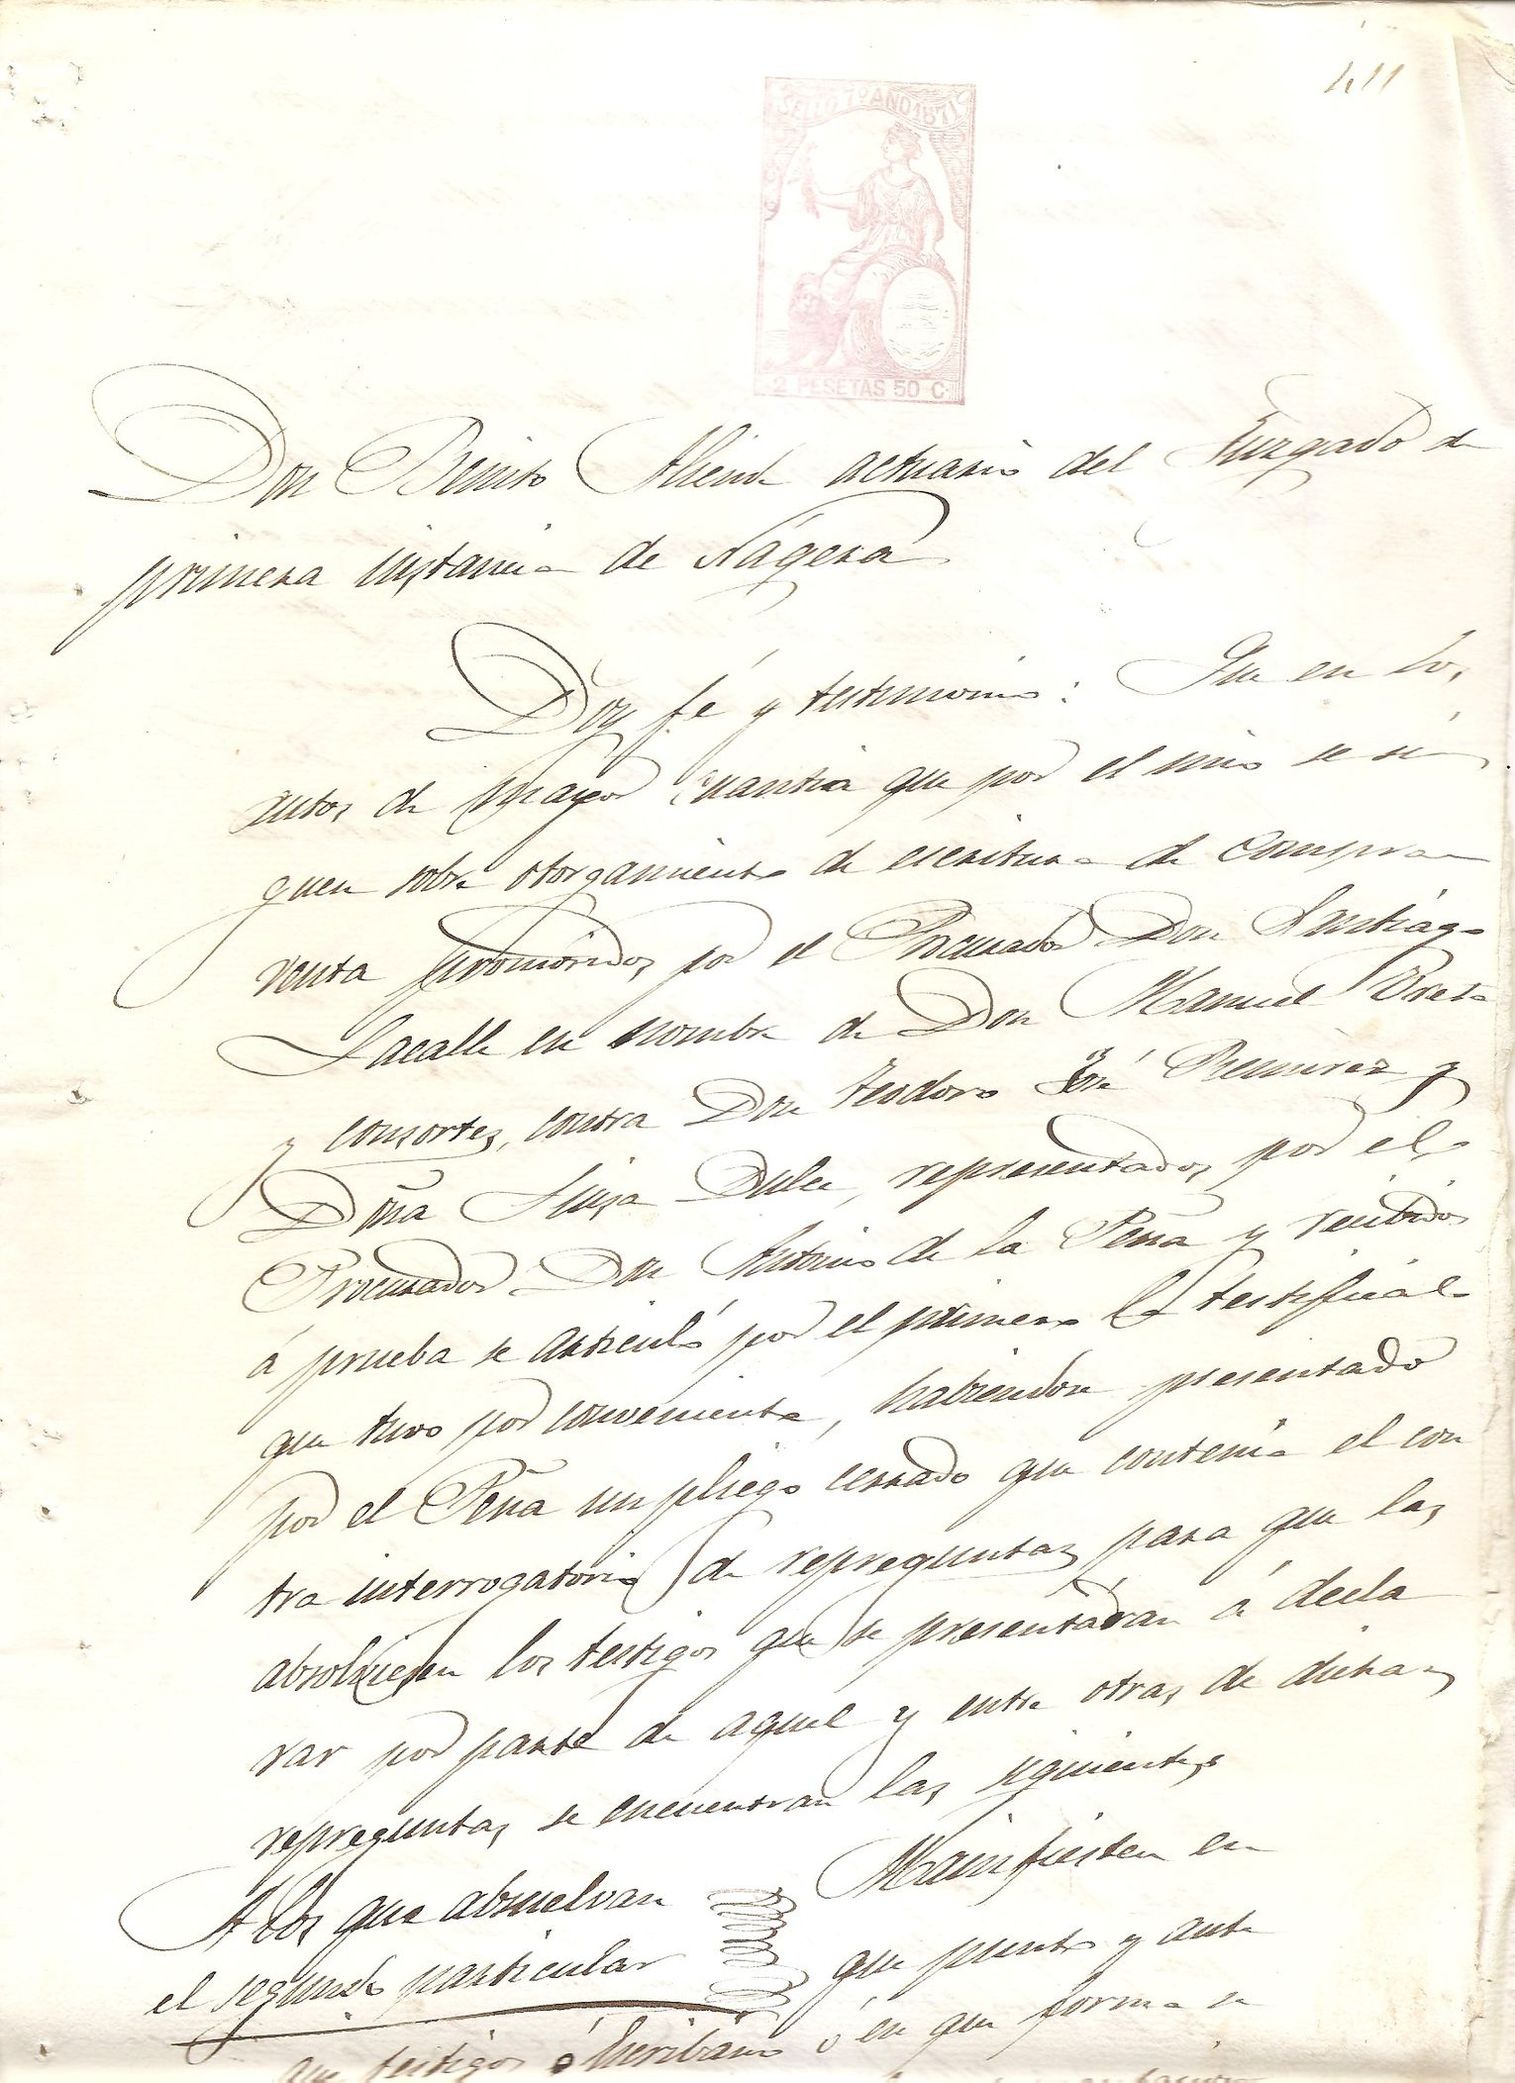 411
SELLO 7º AÑO 1871
2 PESETAS 50 C.
Don Benito Allende actuario del Juzgado de
primera instancia de Nágera
Doy fé y testimonio: Que en los
autos de mayor cuantia que por el mio se si
guen sobre otorgamiento de escritura de compra
venta promóvidos por el Procurador Don Santiago
Lacalle en nombre de Don Manuel Prieto
y consortes, contra Don Teodoro José Remirez y
Doña Luisa Dulce, representados por el
Procurador Don Antonio de la Peña y recibidos
á prueba se articuló por el primero la testifical
que tuvo por conveniente, habiendose presentado
por el Peña un pliego cerrado que contenia el con
tra interrogatorio de repreguntas para que las
absolviesen los testigos que se presentáran á decla
rar por parte de aquel y entre otras de dichas
repreguntas se encuentran las siguientes
A los que absuelvan Manifiesten en
el segundo particular que punto y ante
que testigos ó Escribano ó en que forma se